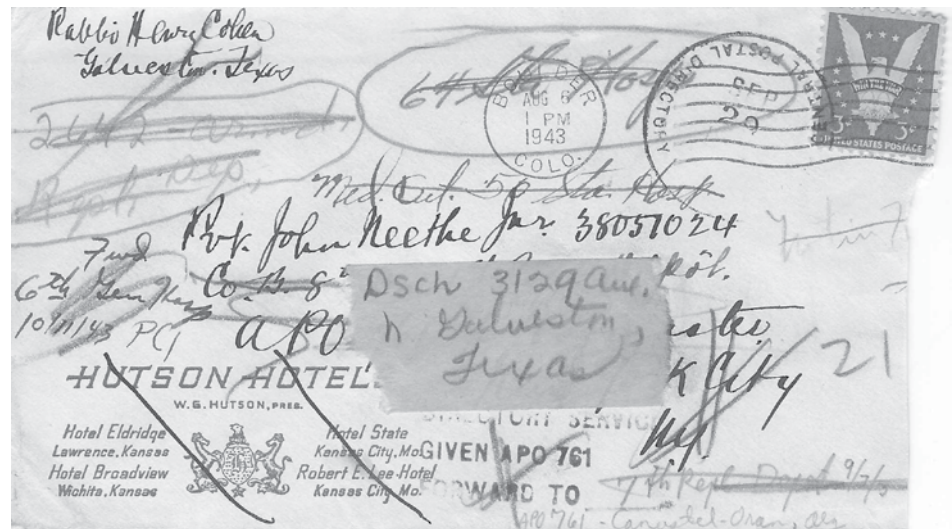 Rabbi Henry Cohen
Galveston. Texas
64 Sta Hosp
BOULDER
AUG 6
1 PM
1943
COLO.
CENTRAL POSTAL DIRECTORY
SEP
29
3¢ 3¢
UNITED STATES POSTAGE
2642
Repl. Dep.
Med. Det. 50 Sta. Hosp
Pvt. John Neethe Jnr. 38051024
Fwd
6th Gen Hosp
10/11/43
Co. B. 8
APO
Dsch 3129 Ave.
N Galveston,
Texas
K City
N.Y.
21
HUTSON HOTELS
W.G. HUTSON, PRES.
Hotel Eldridge
Lawrence, Kansas
Hotel Broadview
Wichita, Kansas
Hotel State
Kansas City, Mo.
Robert E. Lee Hotel
Kansas City Mo.
DIRECTORY SERVICE
GIVEN APO 761
FORWARD TO
7th Repl Depot 9/7/3
APO 761 - Oran, Alg